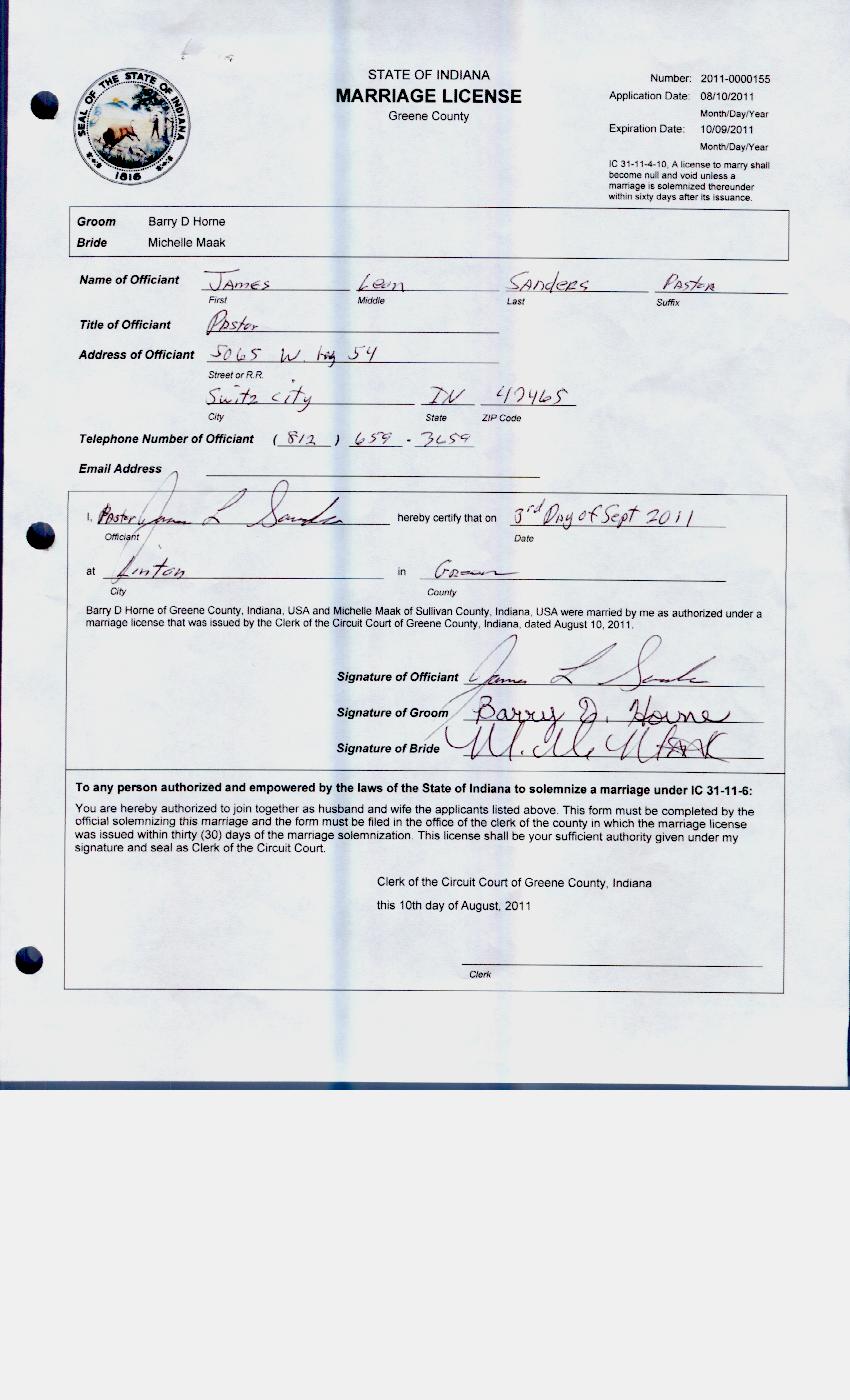 SEAL OF THE STATE OF INDIANA
1816
STATE OF INDIANA
MARRIAGE LICENSE
Greene County
Number: 2011-0000155
Application Date: 08/10/2011
Month/Day/Year
Expiration Date: 10/09/2011
Month/Day/Year
IC 31-11-4-10, A license to marry shall
become null and void unless a
marriage is solemnized thereunder
within sixty days after its issuance.
Groom Barry D Horne
Bride Michelle Maak
Name of Officiant JAMES Leon SANdeRS PASTOR
First Middle Last Suffix
Title of Officiant Pastor
Address of Officiant 5065 W. Hwy 54
Street or R.R.
Switz city IN 47465
City State ZIP Code
Telephone Number of Officiant (812) 659-3659
Email Address
I, Pastor James L Sanders hereby certify that on 3rd DAy of Sept 2011
Officiant Date
at Linton in Green
City County
Barry D Horne of Greene County, Indiana, USA and Michelle Maak of Sullivan County, Indiana, USA were married by me as authorized under a
marriage license that was issued by the Clerk of the Circuit Court of Greene County, Indiana, dated August 10, 2011.
Signature of Officiant James L Sanders
Signature of Groom Barry D. Horne
Signature of Bride Michelle MAAK
To any person authorized and empowered by the laws of the State of Indiana to solemnize a marriage under IC 31-11-6:
You are hereby authorized to join together as husband and wife the applicants listed above. This form must be completed by the
official solemnizing this marriage and the form must be filed in the office of the clerk of the county in which the marriage license
was issued within thirty (30) days of the marriage solemnization. This license shall be your sufficient authority given under my
signature and seal as Clerk of the Circuit Court.
Clerk of the Circuit Court of Greene County, Indiana
this 10th day of August, 2011
Clerk